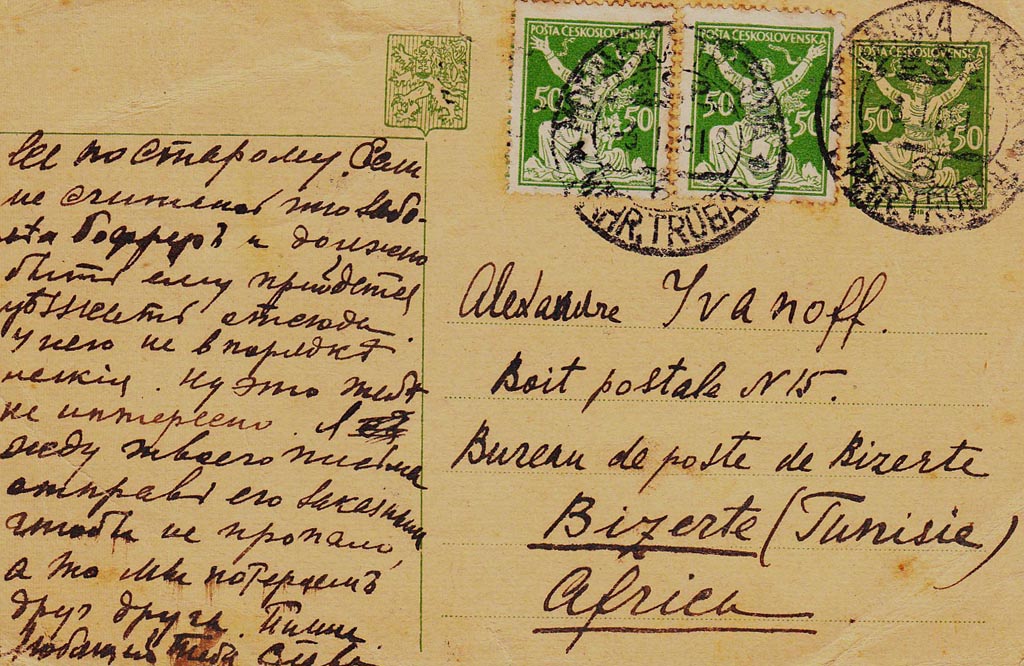 POŠTA ČESKOSLOVENSKÁ
50 50
POŠTA ČESKOSLOVENSKÁ
50 50
50 50
MÄHR. TRÜBAU
все по старому. Если
не считать что забо-
лѣл и должно
быть ему прийдется
уѣзжать отсюда.
У него не в порядкѣ
легкія. Ну это тебѣ
не интересно. Я
жду твоего письма
отправь его заказным
чтобъ не пропало,
а то мы потеряемъ
друг друга. Пиши
Любящий тебя
Alexandre Ivanoff.
Boit postale N 15.
Bureau de poste de Bizerte
Bizerte (Tunisie)
Africa